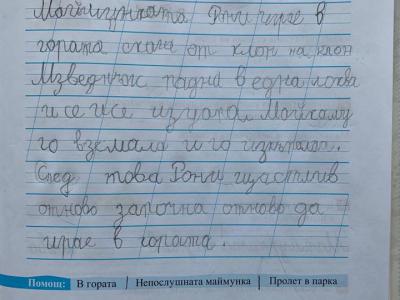 Маймунката Рони играе в
гората скача от клон на клон
Изведнъж падна в една локва
и се изцапа. Майка му
го взема и го изкъпала.
След това Рони щастлив
отново започна отново да
играе в гората.
Помощ: В гората | Непослушната маймунка | Пролет в парка